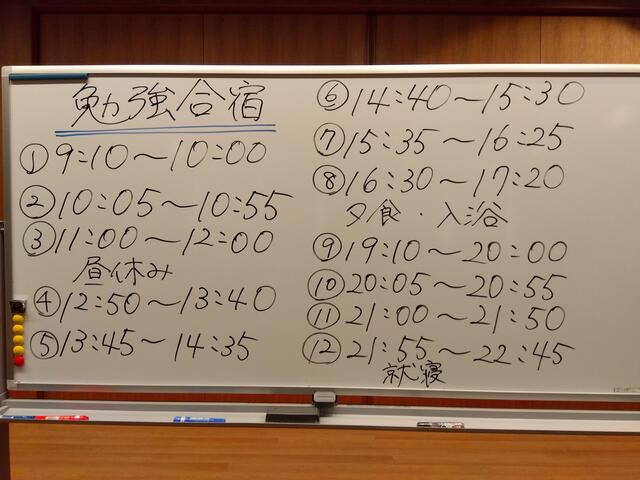 勉強合宿
① 9:10～10:00
② 10:05～10:55
③ 11:00～12:00
昼休み
④ 12:50～13:40
⑤ 13:45～14:35
⑥ 14:40～15:30
⑦ 15:35～16:25
⑧ 16:30～17:20
夕食・入浴
⑨ 19:10～20:00
⑩ 20:05～20:55
⑪ 21:00～21:50
⑫ 21:55～22:45
就寝